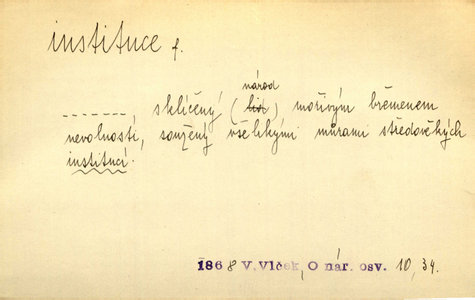 instituce f.
národ
------- sklíčený (lid) mořivým břemenem
nevolnosti, soužený všelikými můrami středověkých
institucí.
1868 V. Vlček, O nár. osv. 10, 34.